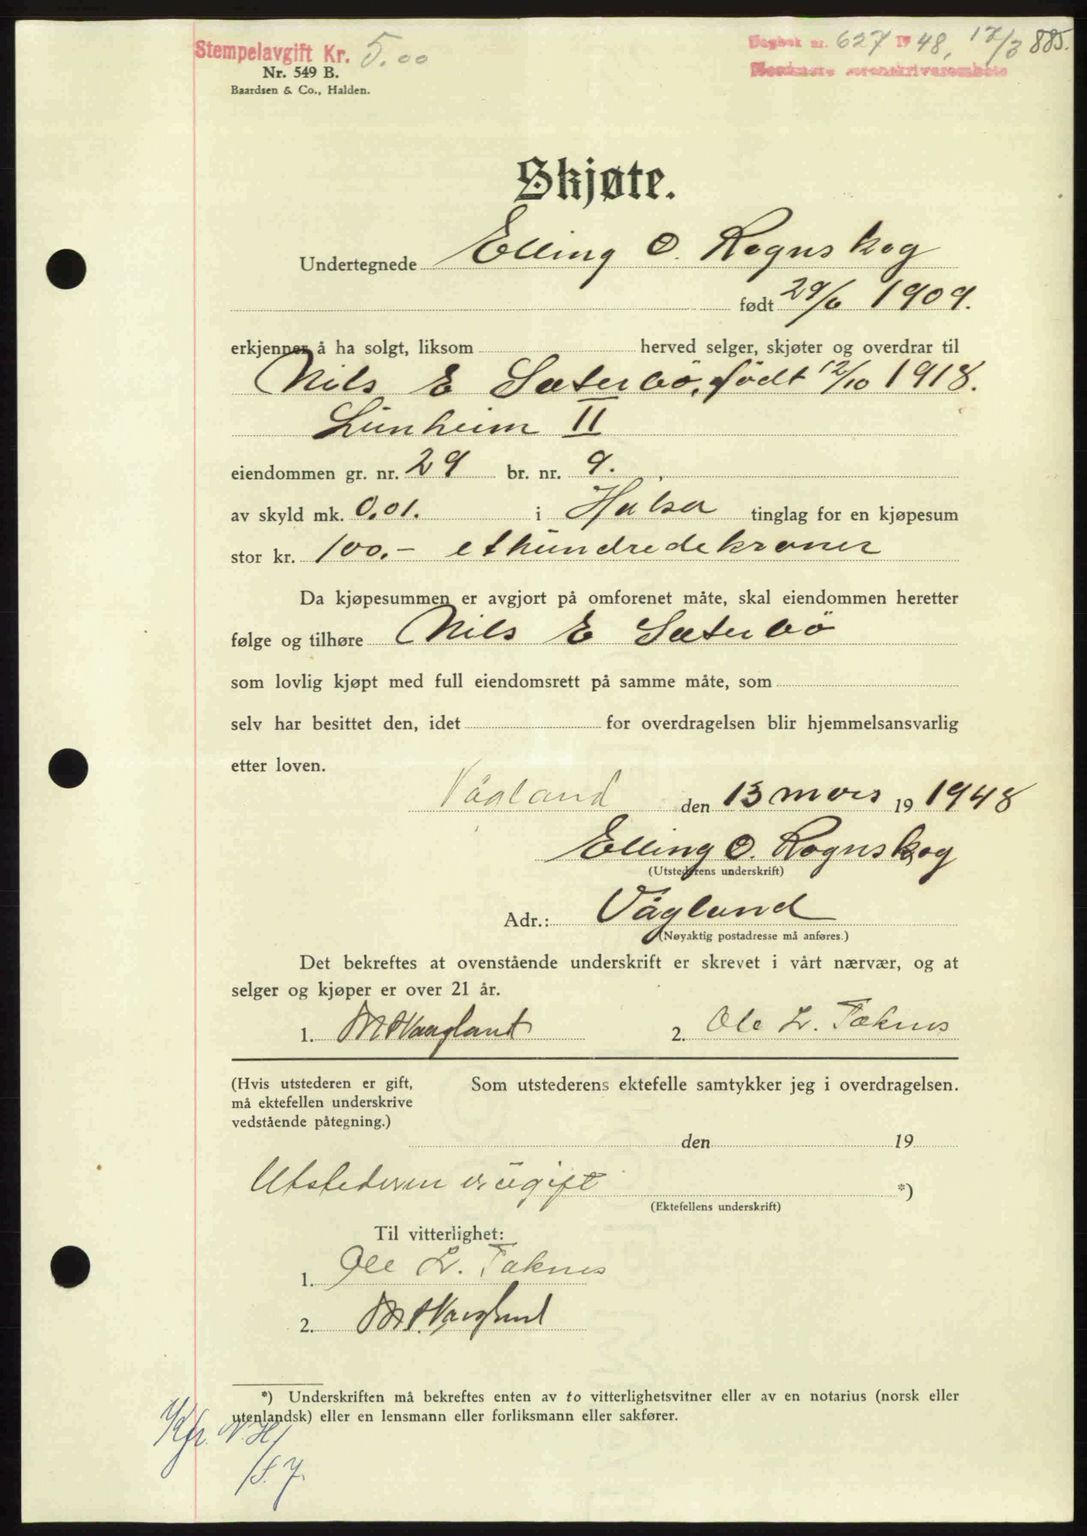 Stempelavgift Kr. 5.00
Dagbok nr. 627 19 48, 17/3 885.
Nordmøre sorenskriverembete
Nr. 549 B.
Baardsen & Co., Halden.
Skjøte.
Undertegnede Elling O. Rognskog
født 29/6 1909.
erkjenner å ha solgt, liksom herved selger, skjøter og overdrar til
Nils E Sæterbö, födt 12/10 1918.
Lünheim II
eiendommen gr. nr. 29 br. nr. 9.
av skyld mk. 0,01. i Halsa tinglag for en kjøpesum
stor kr. 100.- ethündredekroner
Da kjøpesummen er avgjort på omforenet måte, skal eiendommen heretter
følge og tilhøre Nils E Sæterbö
som lovlig kjøpt med full eiendomsrett på samme måte, som
selv har besittet den, idet for overdragelsen blir hjemmelsansvarlig
etter loven.
Vågland den 13 mars 19 1948
Elling O. Rognskog
(Utstederens underskrift)
Adr.: Vågland
(Nøyaktig postadresse må anføres.)
Det bekreftes at ovenstående underskrift er skrevet i vårt nærvær, og at
selger og kjøper er over 21 år.
1. Vaagland 2. Ole L. Taknes
(Hvis utstederen er gift, Som utstederens ektefelle samtykker jeg i overdragelsen.
må ektefellen underskrive
vedstående påtegning.)
den 19
Utstederen er ügift *)
(Ektefellens underskrift)
Til vitterlighet:
1. Ole L. Taknes
2. Vaagland
*) Underskriften må bekreftes enten av to vitterlighetsvitner eller av en notarius (norsk eller
utenlandsk) eller en lensmann eller forliksmann eller sakfører.
N. H/